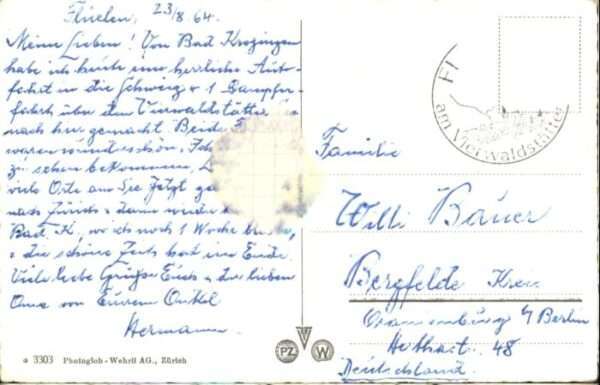 Flüelen, 23/8 64.
Meine Lieben! Von Bad Krozingen
habe ich heute eine herrliche Auto-
fahrt in die Schweiz u 1 Dampfer-
fahrt über den Vierwaldstätter
nach hier gemacht. Beide
waren wunderschön,
zu sehen bekommen,
viele Orte am See Jetzt
nach Zürich u dann wieder
Bad K., wo ich noch 1 Woche
u die schöne Zeit hat ein Ende.
Viele liebe Grüße Euch u der lieben
Oma von Eurem Onkel
Hermann
Familie
Willi Bauer
Bergfelde
Oranienburg b/ Berlin
48
Deutschland
Fl
am Vierwaldstätter
a 3303 Photoglob-Wehrli AG., Zürich
PZ W